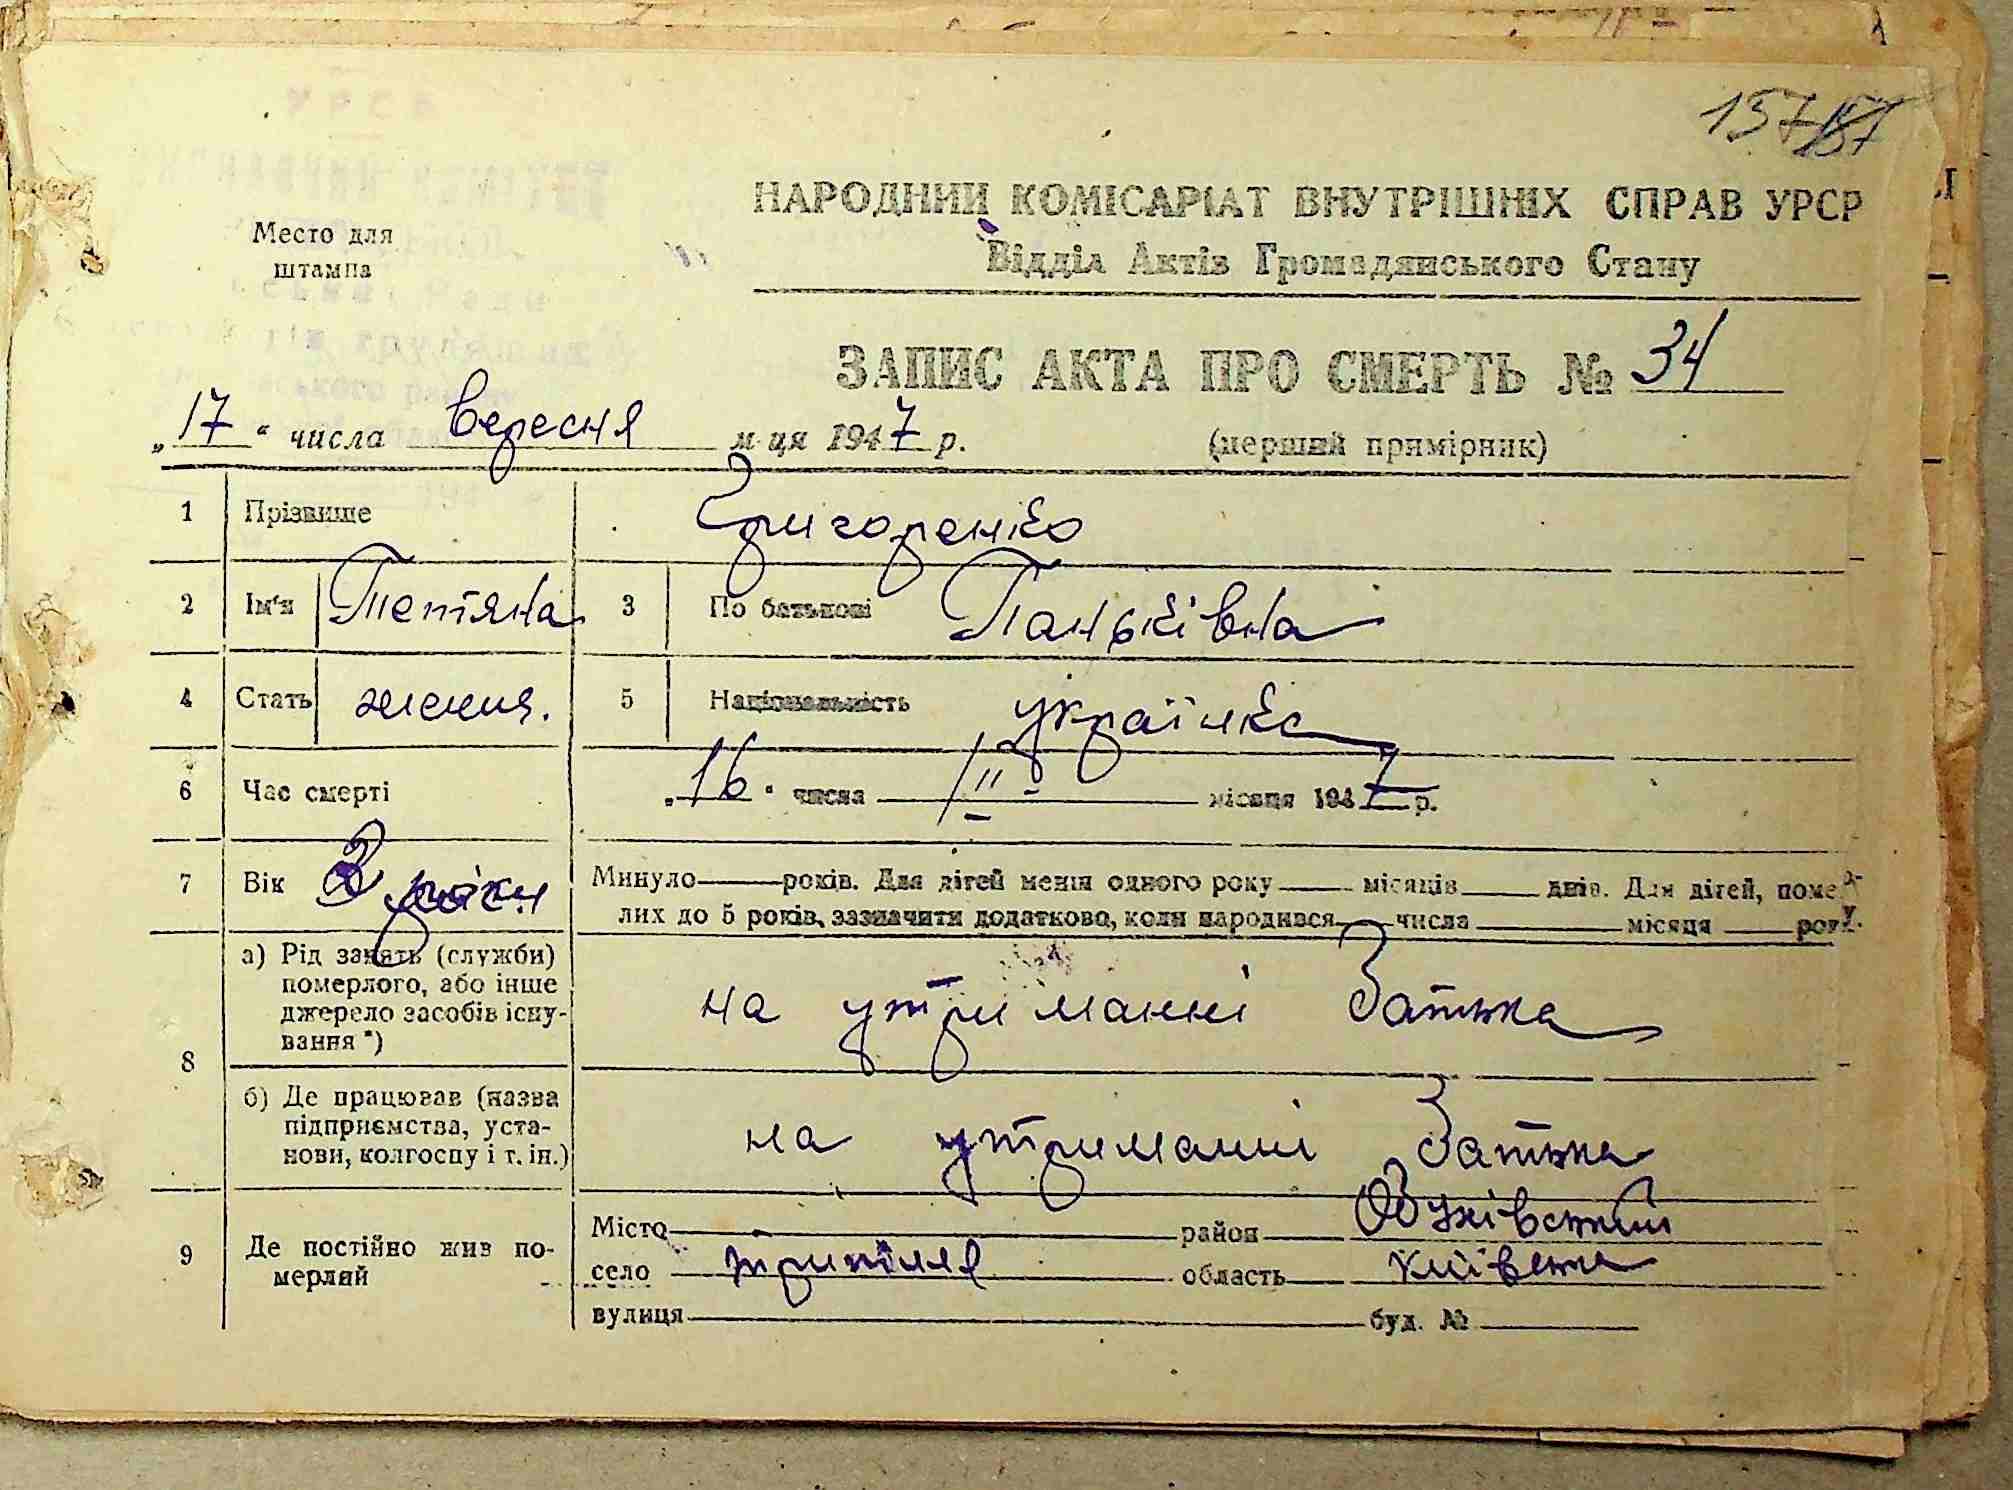 157
НАРОДНИЙ КОМІСАРІАТ ВНУТРІШНІХ СПРАВ УРСР
Место для
штампа
Відділ Актів Громадянського Стану
ЗАПИС АКТА ПРО СМЕРТЬ № 34
„17“ числа вересня м-ця 1947 р. (перший примірник)
1 Прізвище Григоренко
2 Ім'я Тетяна 3 По батькові Паньківна
4 Стать женщ. 5 Національність українка
6 Час смерті „16“ числа місяця 1947 р.
7 Вік 3 роки Минуло років. Для дітей менш одного року місяців днів. Для дітей, поме-
лих до 5 років, зазначити додатково, коли народився числа місяця року.
8 а) Рід занять (служби)
померлого, або інше
джерело засобів існу-
вання *)
на утриманні батька
б) Де працював (назва
підприємства, уста-
нови, колгоспу і т. ін.)
на утриманні батька
9 Де постійно жив по-
мерлий
Місто район Обухівський
село трипілля область київська
вулиця буд. №